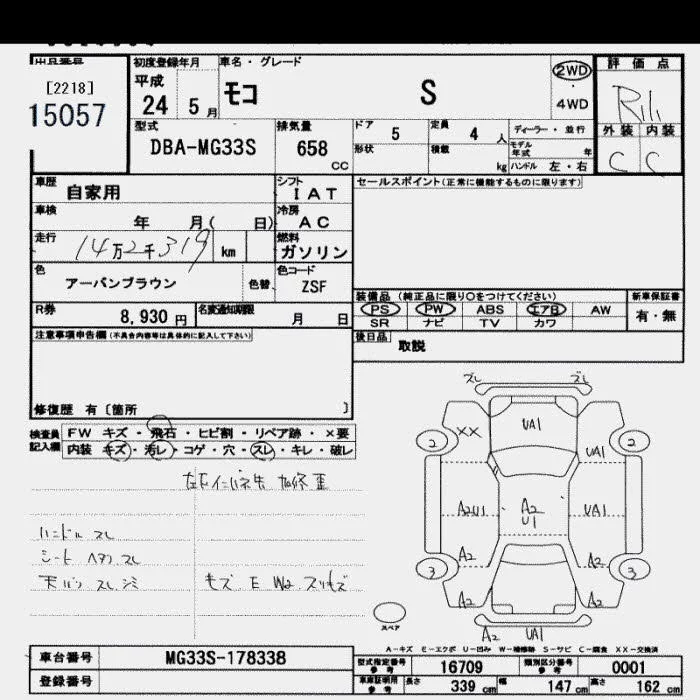 出品番号
[2218]
15057
初度登録年月
平成
24 5 月
車名・グレード
モコ S
2WD
4WD
評価点
R1
外装 内装
C C
型式
DBA-MG33S
排気量
658 CC
ドア 5
定員 4 人
ディーラー・並行
形状
積載 kg
モデル年式 年
ハンドル 左・右
車歴 自家用
シフト IAT
セールスポイント(正常に機能するものに限ります)
車検 年 月( 日)
冷房 AC
走行 14万2千319 km
燃料 ガソリン
色 アーバンブラウン
色替
色コード ZSF
装備品 (純正品に限り○をつけてください)
新車保証書
PS PW ABS エアB AW
有・無
SR ナビ TV カワ
R券 8,930 円
名変通知期限 月 日
後日品 取説
注意事項申告欄(不具合内容等は具体的に記入して下さい)
修復歴 有〔箇所 〕
検査員記入欄
FW キズ・飛石・ヒビ割・リペア跡・×要
内装 キズ・汚レ・コゲ・穴・スレ・キレ・破レ
ハンドル スレ
シート ヘタリ スレ
天バリ スレ シミ
ズレ ズレ
UA1
XX
UA1
2 2
A2U1
A2
U1
UA1
A2 A2
3 3
A2 A2
A2 UA1
スペア
A-キズ E-エクボ U-凹み W-補修跡 S-サビ C-腐食 XX-交換済
車台番号 MG33S-178338
型式指定番号 参考 16709
類別区分番号 参考 0001
登録番号
車庫証明用 参考 長さ 339 cm 幅 147 cm 高さ 162 cm